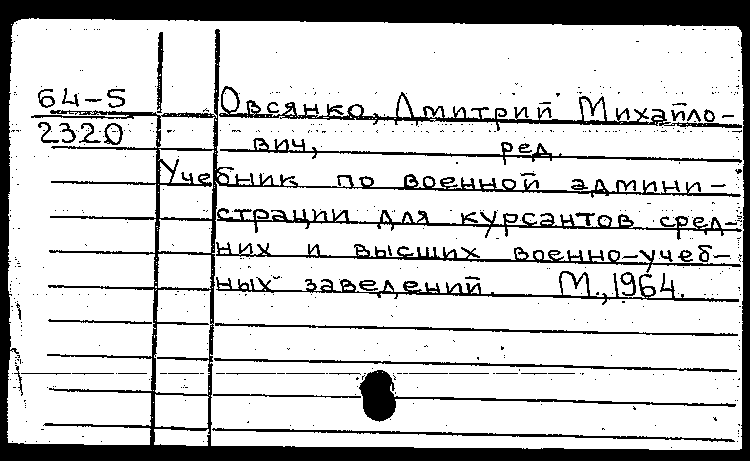 64-5
2320
Овсянко, Дмитрий Михайло-
вич, ред.
Учебник по военной админи-
страции для курсантов сред-
них и высших военно-учеб-
ных заведений. М., 1964.